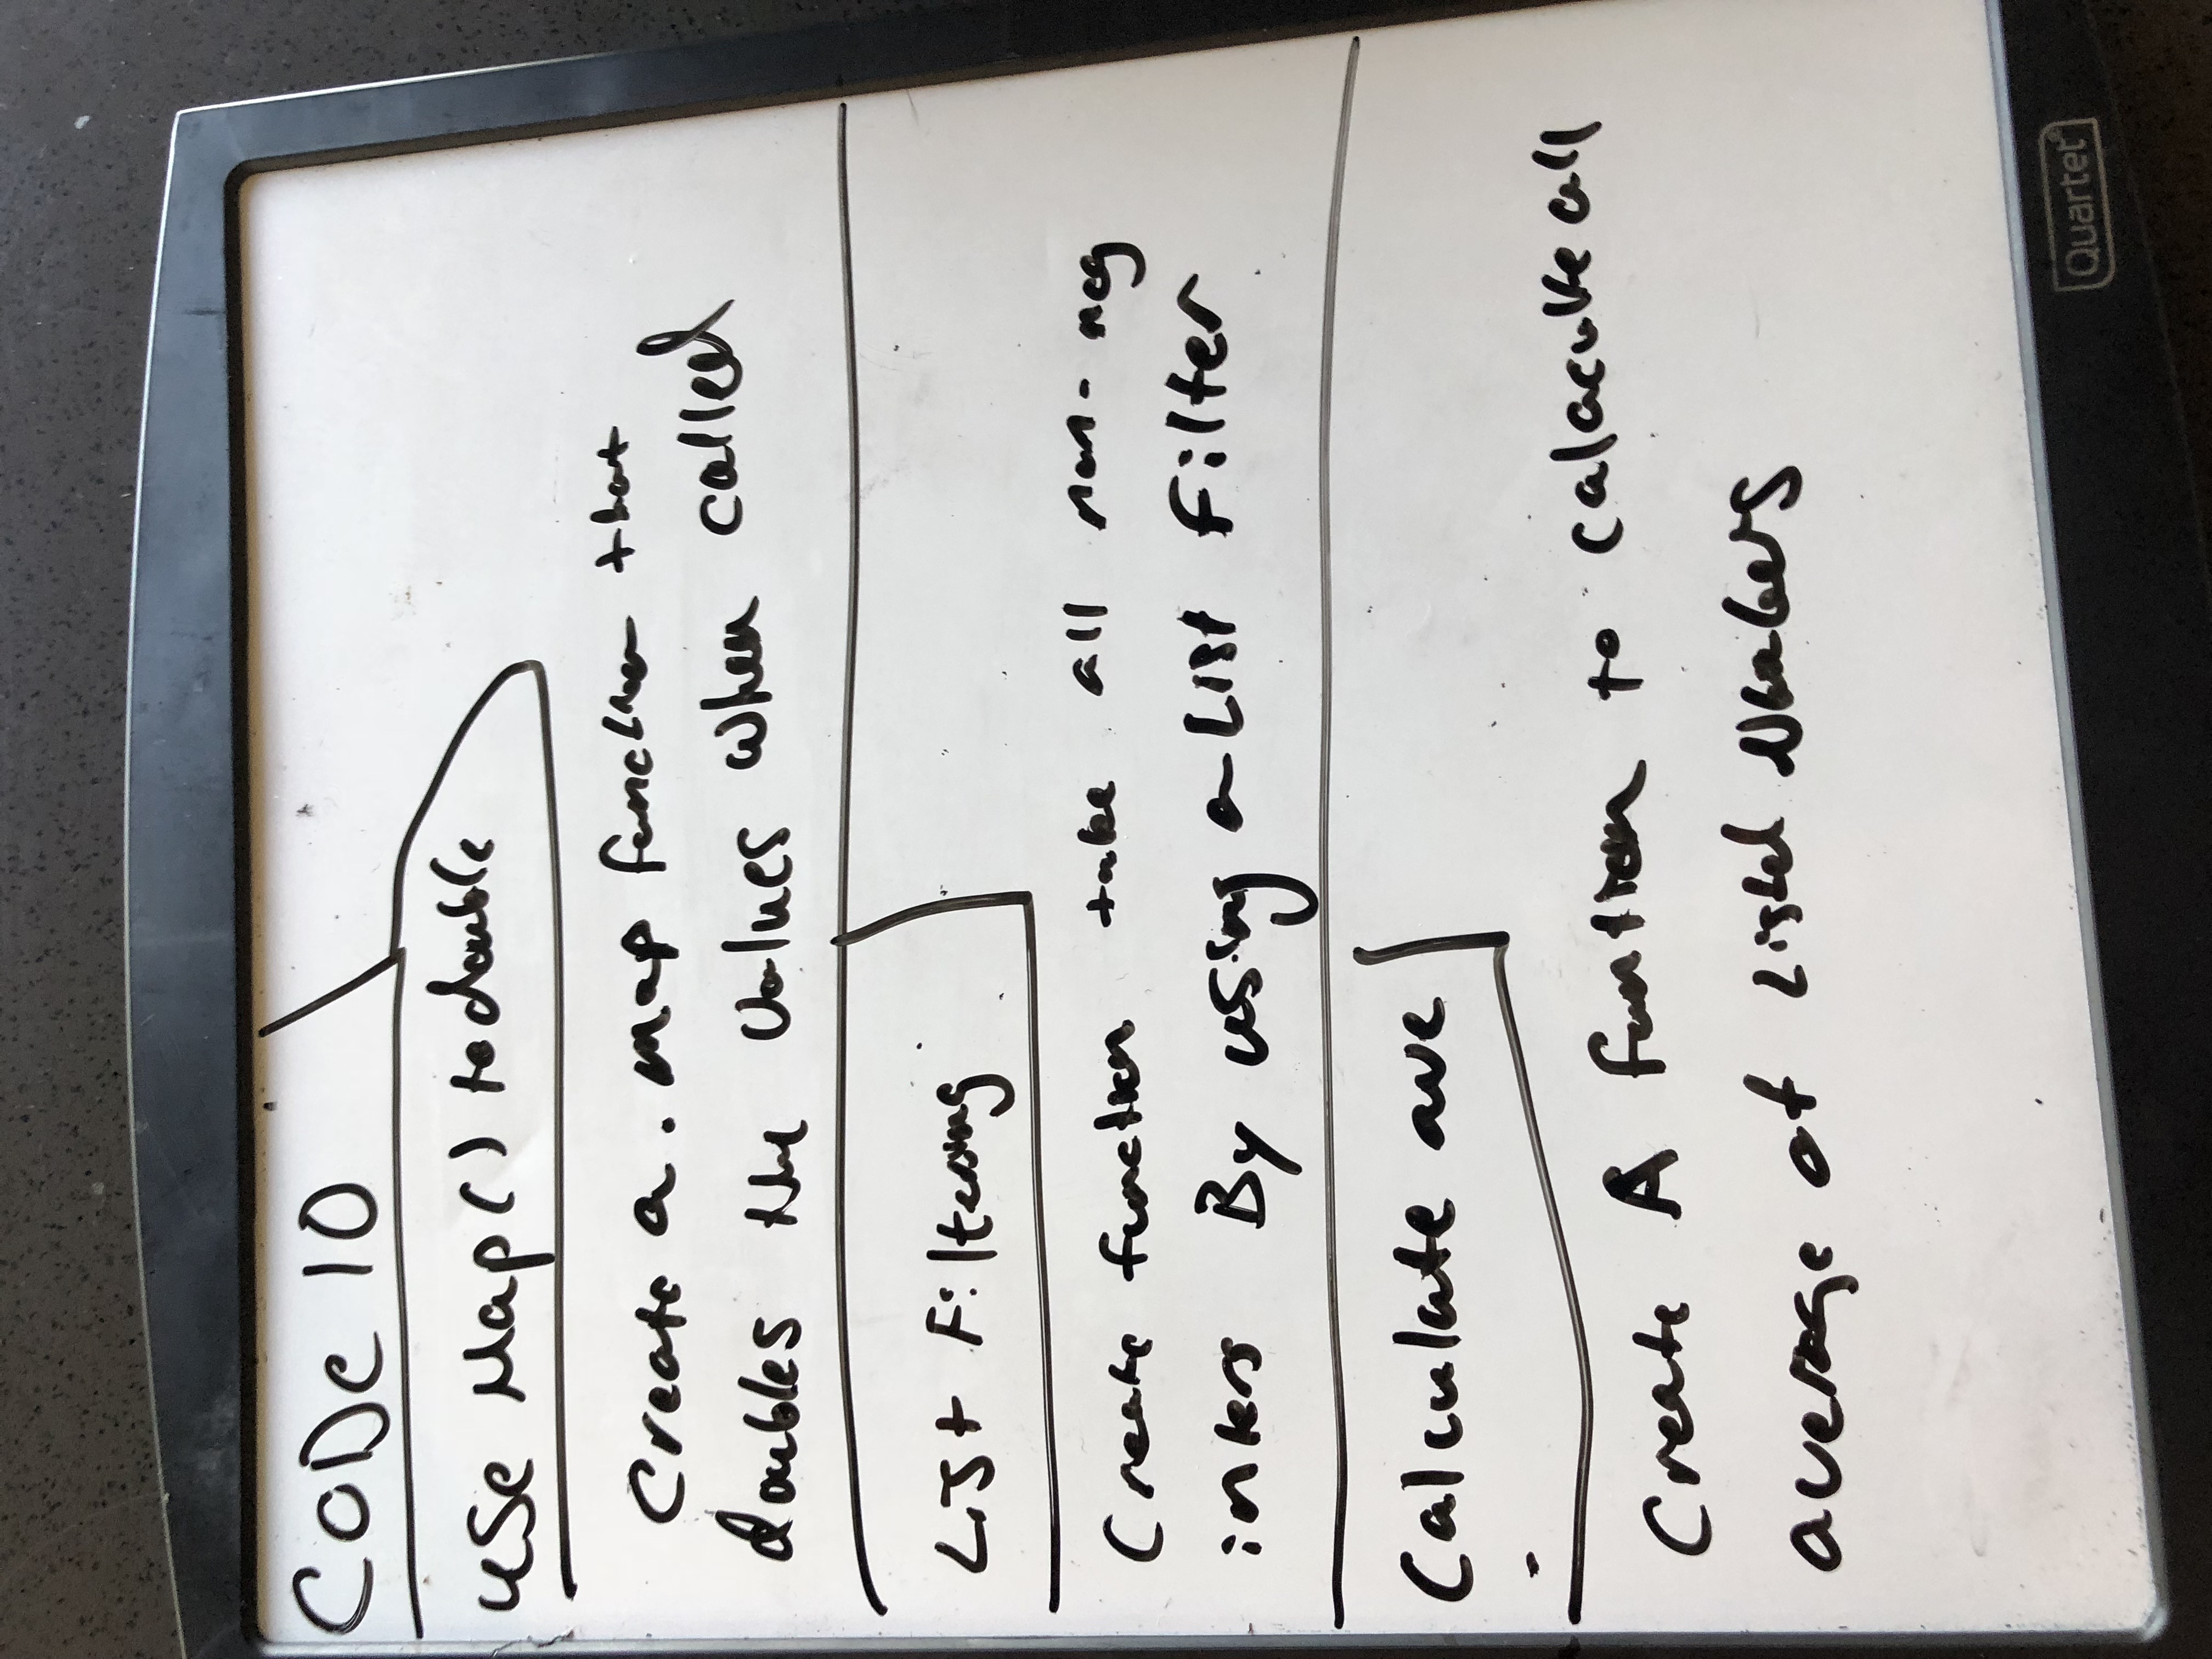 CODe 10
use Map() to double
Create a .map function that
doubles the values when called
List Filtering
Create function take all non-neg
inters By using a List Filter
Calculate ave
Create A funtion to calaculte all
average of Listed Numbers
Quartet®